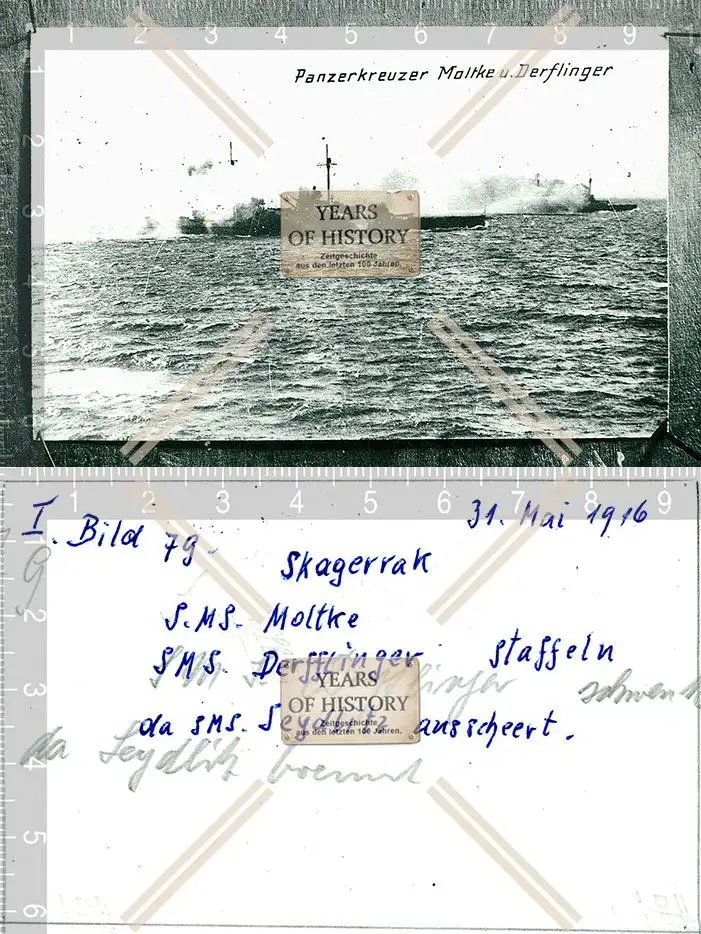 1 2 3 4 5 6 7 8 9
Panzerkreuzer Moltke u. Derflinger
1
2
3
4
5
6
YEARS
OF HISTORY
Zeitgeschichte
aus den letzten 100 Jahren.
1 2 3 4 5 6 7 8 9
I. Bild 79.
31. Mai 1916
9
Skagerrak
S.M.S. Moltke
SMS. Derfflinger staffeln
schwenk
YEARS
OF HISTORY
Zeitgeschichte
aus den letzten 100 Jahren.
da SMS. Seydlitz ausscheert.
da Seydlitz brennt
1
2
3
4
5
6